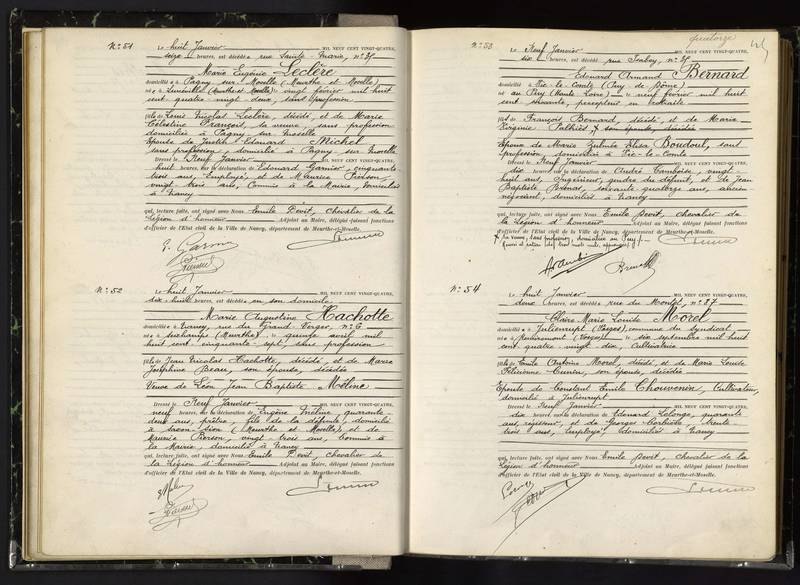 N.° 51
Le huit Janvier MIL NEUF CENT VINGT-QUATRE,
seize heures, est décédée rue Sainte Marie, n° 35
Marie Eugénie Leclère
domiciliée à Pagny sur Moselle (Meurthe et Moselle)
née à Lunéville (Meurthe et Moselle) le vingt février mil huit
cent quatre vingt deux, sans profession
fille de Louis Nicolas Leclère, décédé, et de Marie
Célestine François, sa veuve, sans profession
domiciliée à Pagny sur Moselle
Epouse de Justin Edouard Michel
sans profession, domicilié à Pagny sur Moselle
Dressé le Neuf Janvier MIL NEUF CENT VINGT-QUATRE,
huit heures, sur la déclaration de Edouard Garnier, cinquante
trois ans, employé, et de Maurice Pierson
vingt trois ans, Commis à la Mairie, domiciliés
à Nancy
qui, lecture faite, ont signé avec Nous Emile Devit, chevalier de la
Légion d'honneur Adjoint au Maire, délégué faisant fonctions
d'officier de l'Etat civil de la Ville de Nancy, département de Meurthe-et-Moselle.
N.° 52
Le huit Janvier MIL NEUF CENT VINGT-QUATRE,
dix huit heures, est décédée en son domicile
Marie Augustine Hachotte
domiciliée à Nancy, rue du Grand Verger, n° 6
née à (Meurthe) le quinze avril mil
huit cent cinquante sept, sans profession
fille de Jean Nicolas Hachotte, décédé et de Marie
Joséphine Beau, son épouse, décédée
Veuve de Léon Jean Baptiste Méline
Dressé le Neuf Janvier MIL NEUF CENT VINGT-QUATRE,
neuf heures, sur la déclaration de Eugène Méline, quarante
deux ans, prêtre, fils de la défunte, domicilié
à (Meurthe et Moselle), et de
Maurice Pierson, vingt trois ans, Commis à
la Mairie, domicilié à Nancy
qui, lecture faite, ont signé avec Nous Emile Devit, chevalier de
la Légion d'honneur Adjoint au Maire, délégué faisant fonctions
d'officier de l'Etat civil de la Ville de Nancy, département de Meurthe-et-Moselle.
quatorze
N.° 53
Le Neuf Janvier MIL NEUF CENT VINGT-QUATRE,
dix heures, est décédé rue Isabey, n° 35
Edouard Armand Bernard
domicilié à Vic-le-Comte (Puy de Dôme)
né au Puy (Haute Loire) le neuf février mil huit
cent soixante, percepteur en retraite
fils de François Bernard, décédé, et de Marie
Virginie son épouse, décédée
Epoux de Marie Elisa Boudoul, sans
profession, domiciliée à Vic-le-Comte
Dressé le Neuf Janvier MIL NEUF CENT VINGT-QUATRE,
dix heures, sur la déclaration de André vingt
huit ans, Ingénieur, gendre du défunt, et de Jean
Baptiste soixante quatorze ans, ancien
négociant, domiciliés à Nancy
qui, lecture faite, ont signé avec Nous Emile Devit, chevalier de
la Légion d'honneur Adjoint au Maire, délégué faisant fonctions
d'officier de l'Etat civil de la Ville de Nancy, département de Meurthe-et-Moselle.
sa veuve, sans profession, domiciliée au Puy
N.° 54
Le huit Janvier MIL NEUF CENT VINGT-QUATRE,
deux heures, est décédée rue du Montet, n° 87
Claire Marie Louise Morel
domiciliée à Julienrupt (Vosges), commune du Syndicat
née à (Vosges) le six septembre mil huit
cent quatre vingt dix, cultivatrice
fille de Emile Antoine Morel, décédé, et de Marie Louise
son épouse, décédée
Epouse de Constant Emile Chouvenin, Cultivateur,
domicilié à Julienrupt
Dressé le Neuf Janvier MIL NEUF CENT VINGT-QUATRE,
dix heures, sur la déclaration de Edouard Lalonge, quarante
ans, régisseur, et de Georges trente
trois ans, employé, domiciliés à Nancy
qui, lecture faite, ont signé avec Nous Emile Devit, chevalier de la
Légion d'honneur Adjoint au Maire, délégué faisant fonctions
d'officier de l'Etat civil de la Ville de Nancy, département de Meurthe-et-Moselle.